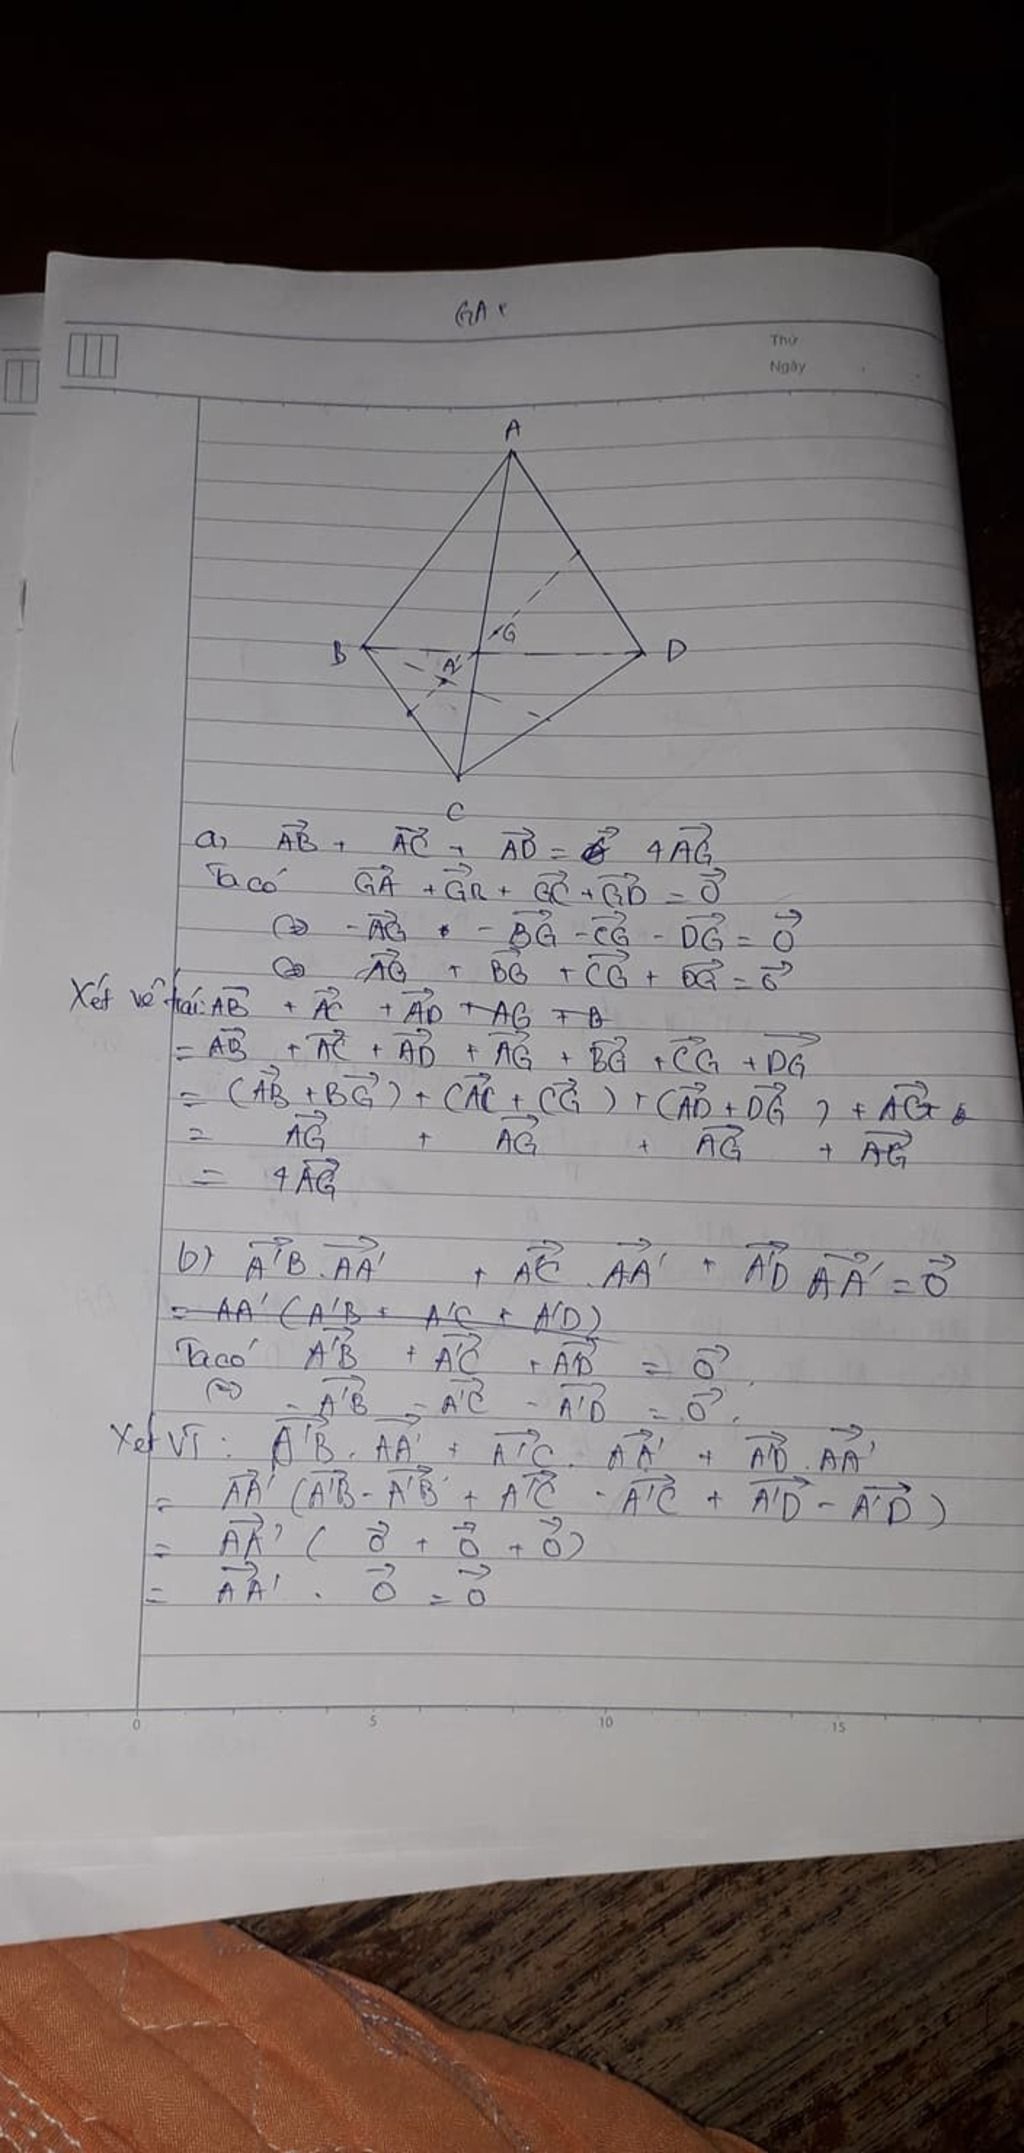 GA
Thứ
Ngày
A
G
B
A'
D
C
a, $\overrightarrow{AB}$ + $\overrightarrow{AC}$ + $\overrightarrow{AD}$ = 4$\overrightarrow{AG}$
Ta có $\overrightarrow{GA}$ + $\overrightarrow{GB}$ + $\overrightarrow{GC}$ + $\overrightarrow{GD}$ = $\vec{0}$
⇔ -$\overrightarrow{AG}$ - $\overrightarrow{BG}$ - $\overrightarrow{CG}$ - $\overrightarrow{DG}$ = $\vec{0}$
⇔ $\overrightarrow{AG}$ + $\overrightarrow{BG}$ + $\overrightarrow{CG}$ + $\overrightarrow{DG}$ = $\vec{0}$
Xét vế trái: $\overrightarrow{AB}$ + $\overrightarrow{AC}$ + $\overrightarrow{AD}$ + AG + B
= $\overrightarrow{AB}$ + $\overrightarrow{AC}$ + $\overrightarrow{AD}$ + $\overrightarrow{AG}$ + $\overrightarrow{BG}$ + $\overrightarrow{CG}$ + $\overrightarrow{DG}$
= ($\overrightarrow{AB}$ + $\overrightarrow{BG}$) + ($\overrightarrow{AC}$ + $\overrightarrow{CG}$) + ($\overrightarrow{AD}$ + $\overrightarrow{DG}$) + $\overrightarrow{AG}$
= $\overrightarrow{AG}$ + $\overrightarrow{AG}$ + $\overrightarrow{AG}$ + $\overrightarrow{AG}$
= 4$\overrightarrow{AG}$
b) $\overrightarrow{A'B}$ . $\overrightarrow{AA'}$ + $\overrightarrow{A'C}$ . $\overrightarrow{AA'}$ + $\overrightarrow{A'D}$ $\overrightarrow{AA'}$ = $\vec{0}$
= AA' (A'B + A'C + A'D)
Ta có $\overrightarrow{A'B}$ + $\overrightarrow{A'C}$ + $\overrightarrow{A'D}$ = $\vec{0}$
⇔ - $\overrightarrow{A'B}$ - $\overrightarrow{A'C}$ - $\overrightarrow{A'D}$ = $\vec{0}$.
Xét VT: $\overrightarrow{A'B}$ . $\overrightarrow{AA'}$ + $\overrightarrow{A'C}$ . $\overrightarrow{AA'}$ + $\overrightarrow{A'D}$ . $\overrightarrow{AA'}$
= $\overrightarrow{AA'}$ ($\overrightarrow{A'B}$ - $\overrightarrow{A'B}$ + $\overrightarrow{A'C}$ - $\overrightarrow{A'C}$ + $\overrightarrow{A'D}$ - $\overrightarrow{A'D}$)
= $\overrightarrow{AA'}$ ($\vec{0}$ + $\vec{0}$ + $\vec{0}$)
= $\overrightarrow{AA'}$ . $\vec{0}$ = $\vec{0}$
0 5 10 15